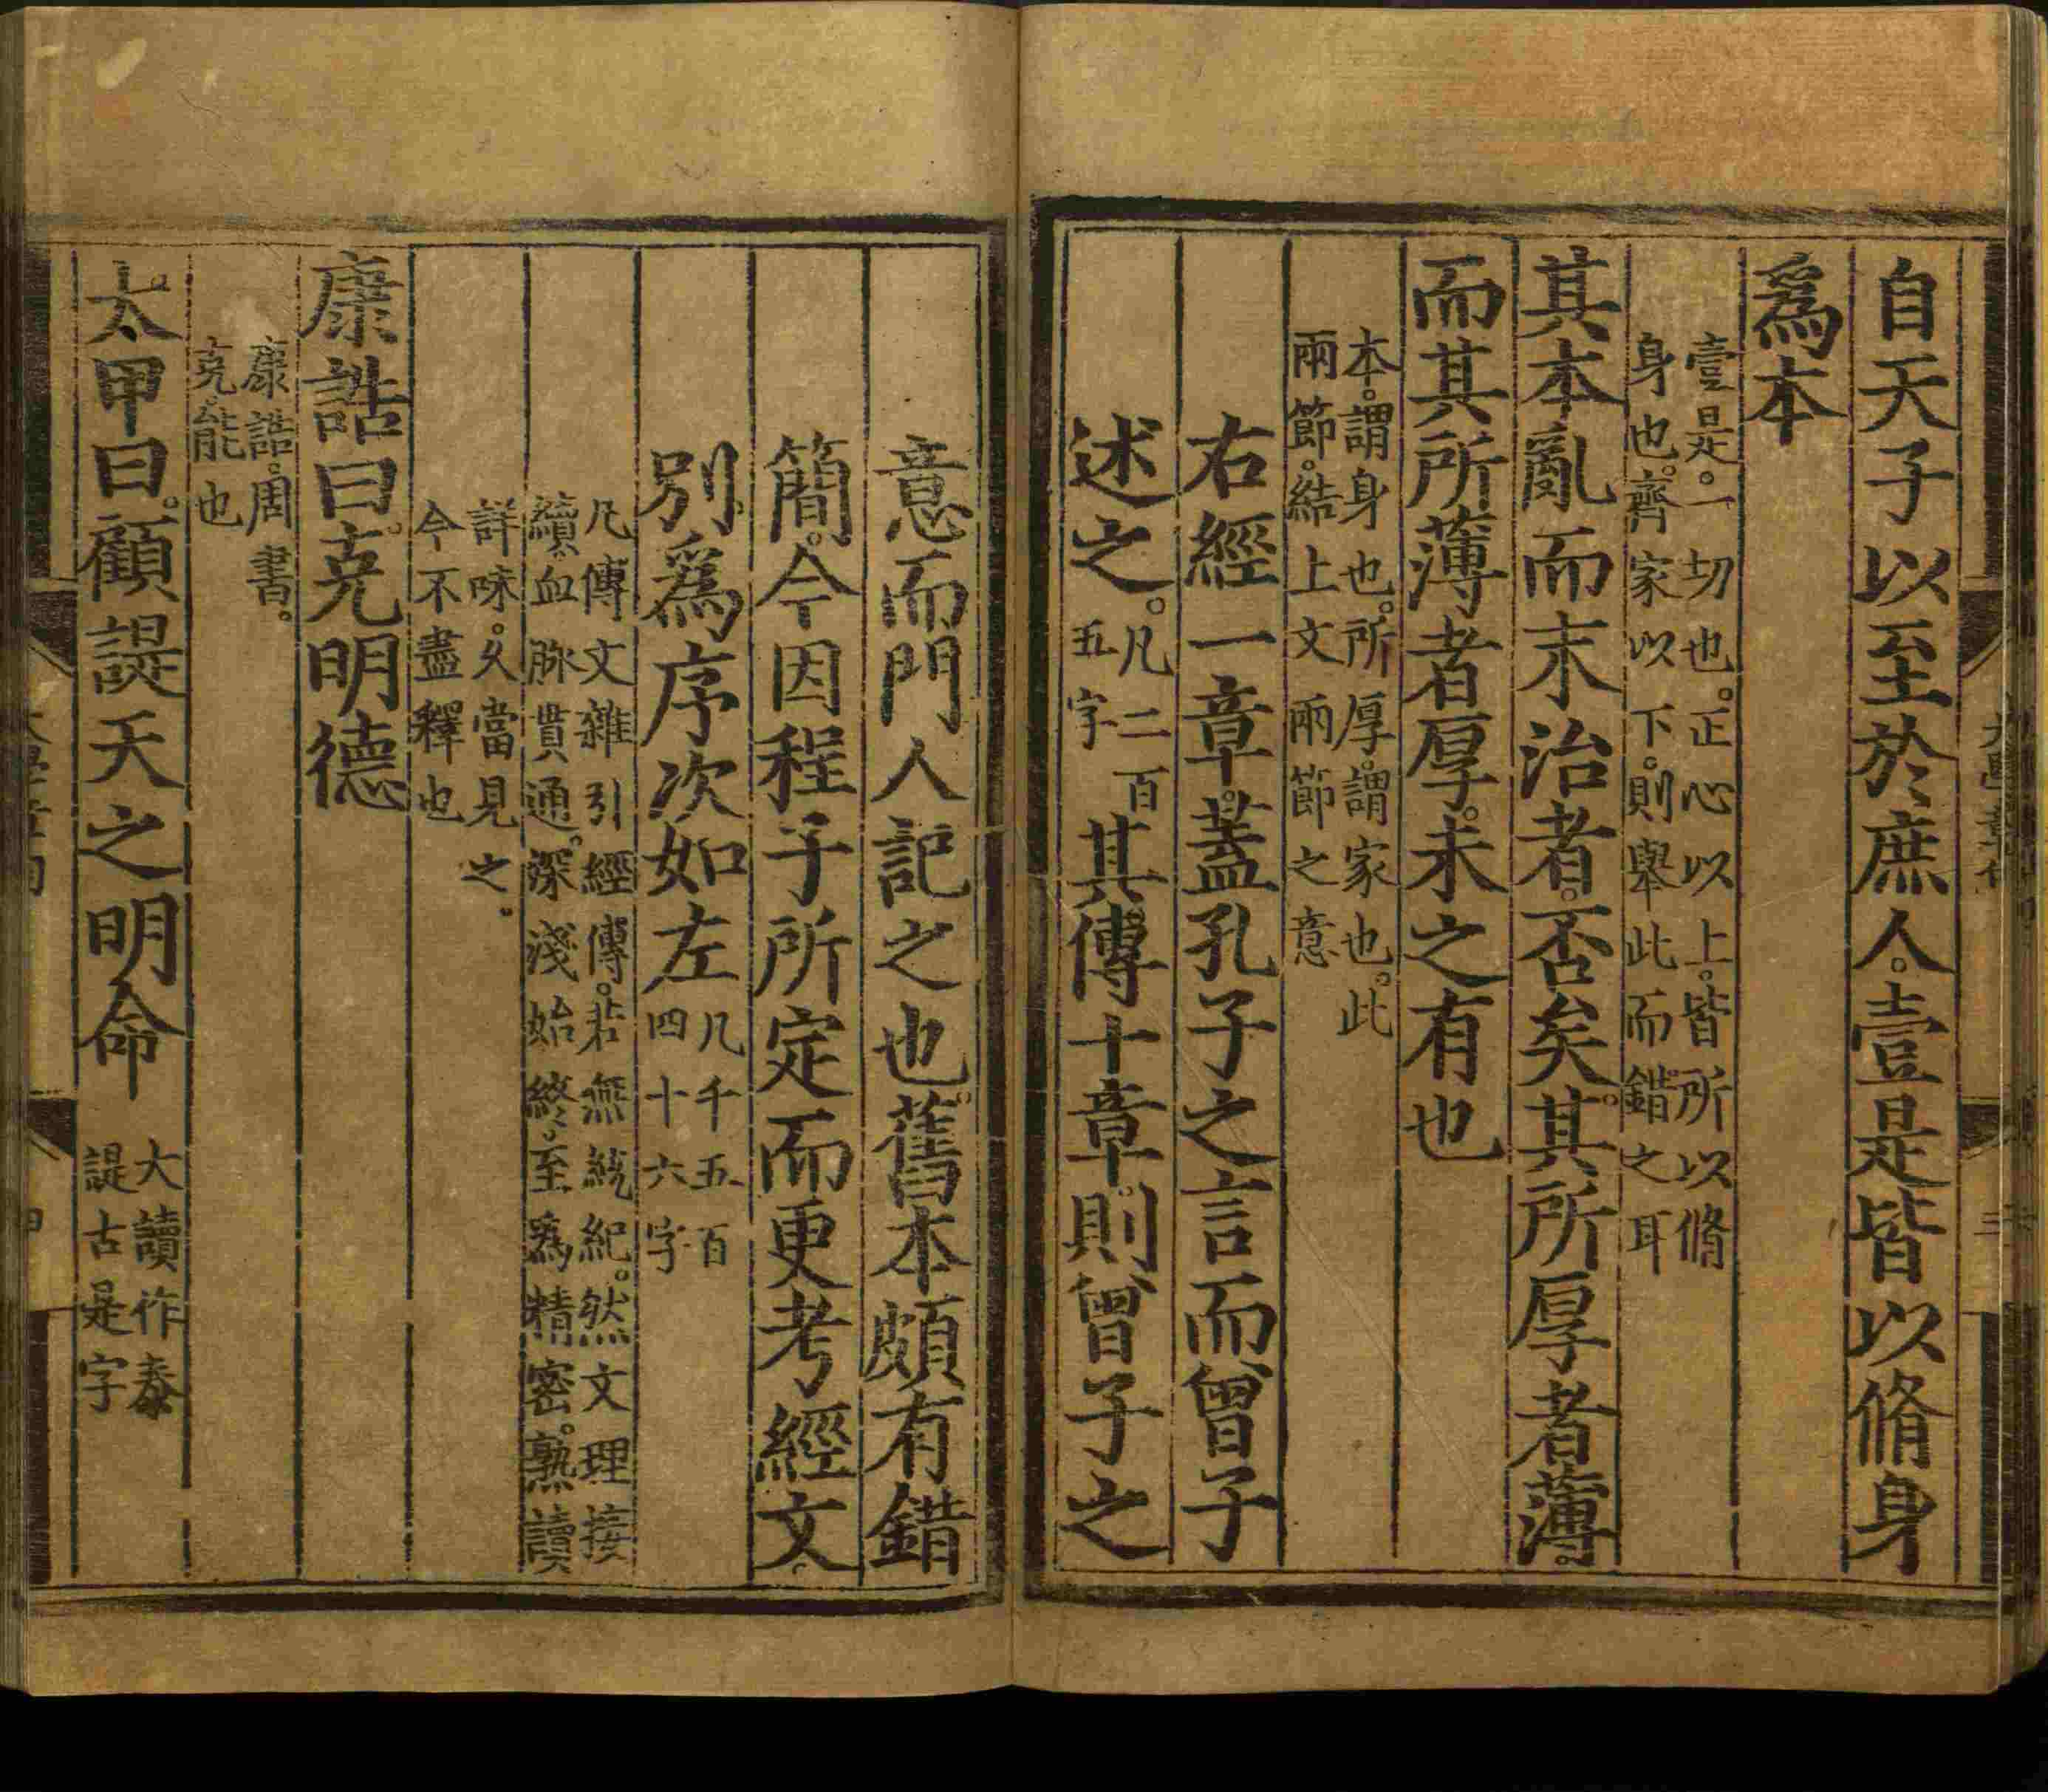 自天子以至於庶人。壹是皆以脩身
爲本
壹是。一切也。正心以上。皆所以脩
身也。齊家以下。則舉此而錯之耳
其本亂而末治者。否矣。其所厚者薄。
而其所薄者厚。未之有也
本。謂身也。所厚。謂家也。此
兩節。結上文兩節之意
右經一章。蓋孔子之言而曾子
述之。凡二百五字其傳十章。則曾子之
意而門人記之也。舊本頗有錯
簡。今因程子所定而更考經文。
別爲序次如左凡千五百四十六字
凡傳文雜引經傳。若無統紀。然文理接
續。血脉貫通。深淺始終。至爲精密。熟讀
詳味。久當見之。
今不盡釋也
康誥曰。克明德
康誥。周書。
克。能也
太甲曰。顧諟天之明命 大讀作泰諟古是字